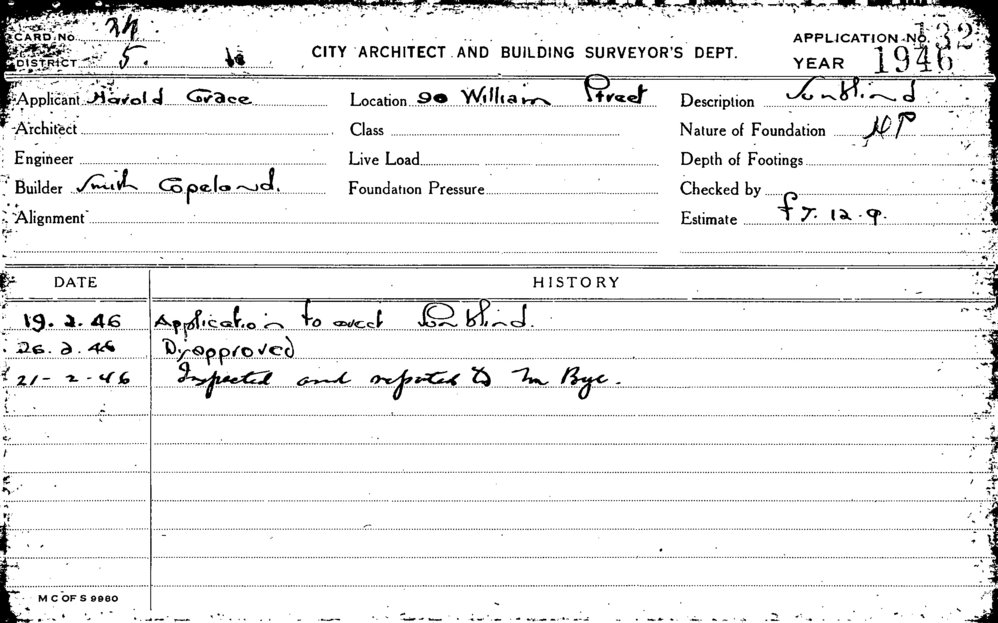 CARD NO.
DISTRICT 5.
CITY ARCHITECT AND BUILDING SURVEYOR'S DEPT.
APPLICATION No. 132
YEAR 1946
Applicant Harold Grace Location 90 William Street Description Sunblind
Architect Class Nature of Foundation
Engineer Live Load Depth of Footings
Builder Smith Copeland. Foundation Pressure Checked by
Alignment Estimate £7.12.9.
DATE HISTORY
19.2.46 Application to erect Sunblind.
26.2.46 Disapproved
21-2-46 Inspected and reported to Mr Bye.
M C OF S 9980